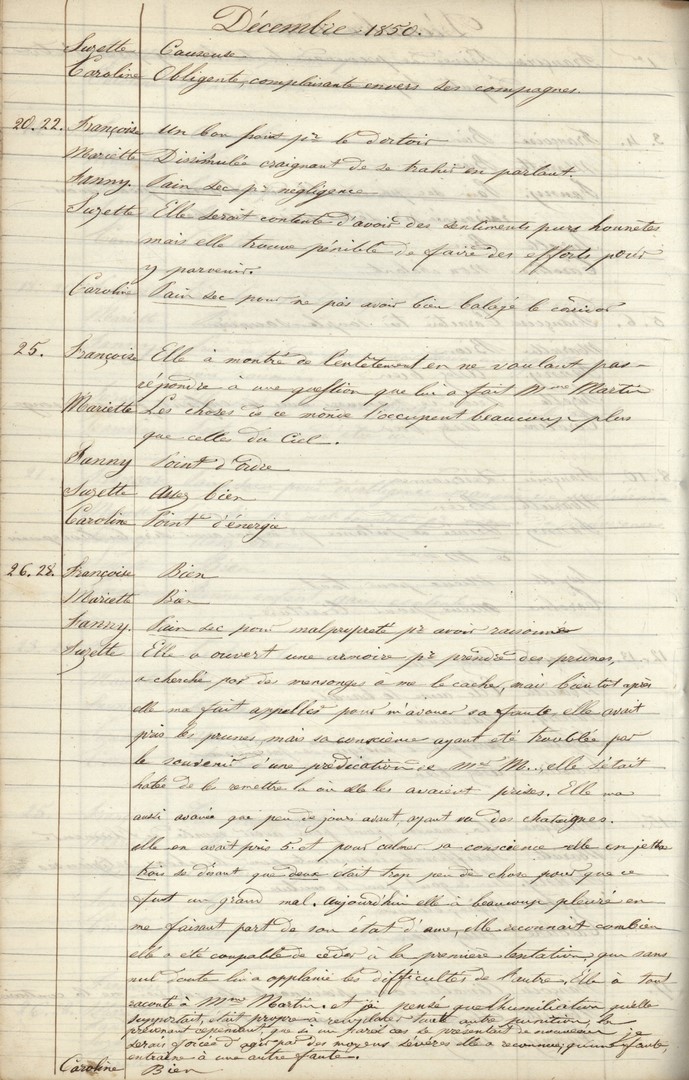 Décembre 1850.
Suzette Causeuse
Caroline Obligente, complaisante envers ses compagnes.
20.22. Françoise Un bon point pr le dortoir
Mariette Dissimulée craignant de se trahir en parlant.
Fanny. Pain sec pr négligence
Suzette Elle serait contente d'avoir des sentiments purs honnêtes
mais elle trouve pénible de faire des efforts pour
y parvenir.
Caroline Pain sec pour ne pas avoir bien balayé le corridor
25. Françoise Elle à montré de l'entêtement en ne voulant pas
répondre à une question que lui a fait Mme Martin
Mariette Les choses de ce monde l'occupent beaucoup plus
que celles du Ciel.
Fanny Point d'ordre
Suzette Assez bien
Caroline Point d'énergie
26.28. Françoise Bien
Mariette Bien
Fanny. Pain sec pour malpropreté pr avoir raisonnée
Suzette Elle a ouvert une armoire pr prendre des prunes,
a cherché par de mensonges à me le cacher, mais bientot après
elle ma fait appeller pour m'avouer sa faute, elle avait
pris les prunes, mais sa conscience ayant été troublée par
le souvenir d'une prédication de Mr M., elle s'était
hatée de les remettre la ou elle les avaient prises. Elle ma
aussi avouée que peu de jours avant, ayant vu des chataignes.
elle en avait pris 5 et pour calmer sa conscience elle en jetta
trois se disant que deux était trop peu de chose pour que ce
fust un grand mal. Aujourd'hui elle à beaucoup pleuré en
me faisant part de son état d'ame, elle reconnait combien
elle a été coupable de céder à la première tentation, qui sans
nul doute lui a applanie les difficultés de l'autre. Elle à tout
raconté à Mme Martin. et j'ai pensé que l'humiliation qu'elle
supportait, était propre à remplacer toute autre punition, la
prévenant cependant, que si un pareil cas se présentait de nouveau je
serais forcée d'agir par des moyens sévères elle a reconnu, qu'une faute,
entraine à une autre faute.
Caroline Bien